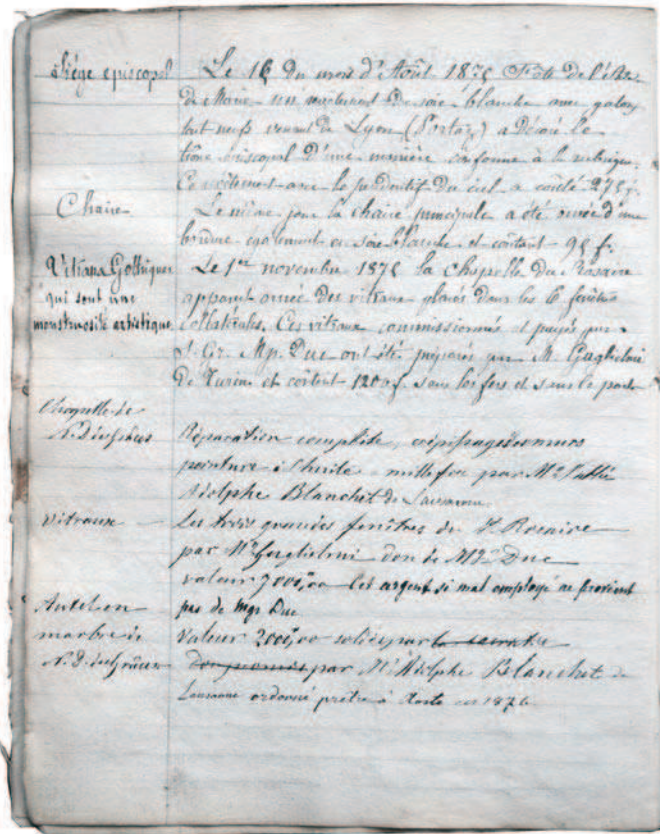 Siége episcopal
Le 16 du mois d'Août 187 Fête de
de Marie un revêtement de soie blanche avec galons
tout neufs venant de Lyon ( ) a décoré le
trône episcopal d'une manière conforme à la
Ce revêtement avec le du ciel a coûté 275 f.
Chaire
Le même jour la chaire principale a été ornée d'une
également en soie blanche et coûtant 95 f.
Vitraux Gothiques
qui sont une
monstruosité artistique
Le 1er novembre 187 la Chapelle du Rosaire
apparut ornée des vitraux placés dans les 6 fenêtres
collatérales. Ces vitraux commissionnés et payés par
S. Gr. Mgr. Duc ont été préparés par M. Guglielmi
de Turin et coûtent 1200 f. sans les fers et sans le
Chapelle de
N. D. des Grâces
Réparation complète, crépissage des murs
peinture à l'huile mille fcs par Mr l'abbé
Adolphe Blanchet de Lausanne.
Vitraux
Les trois grandes fenêtres du S. Rosaire
par Mr Guglielmi don de Mgr Duc
valeur 7000,00 Cet argent si mal employé ne provient
pas de Mgr Duc
Autel en
marbre de
N. D. des Grâces
Valeur 2000,00 soldés par
par Mr Adolphe Blanchet de
Lausanne ordonné prêtre à Aoste en 1876